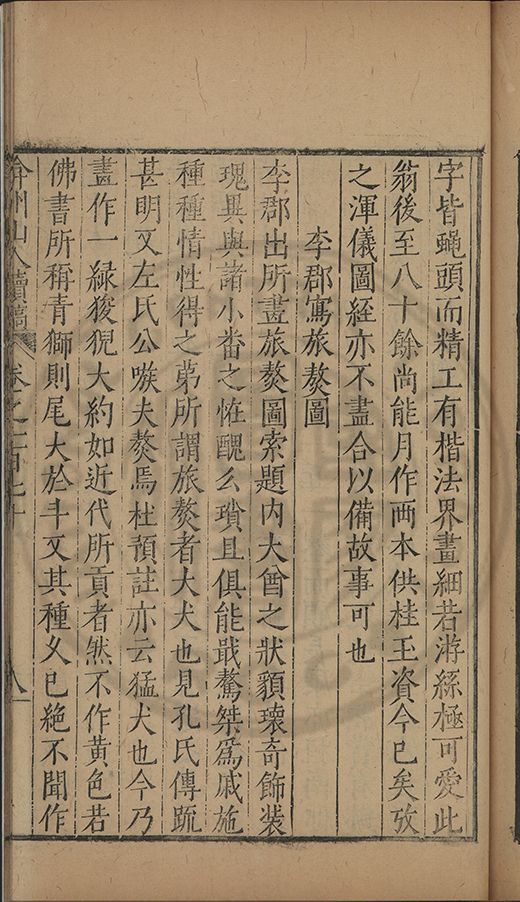 字皆蠅頭而精工有楷法界畫細若游絲極可愛此
翁後至八十餘尚能月作両本供桂玉資今已矣攷
之渾儀圖經亦不盡合以備故事可也
李郡寫旅獒圖
李郡出所畫旅獒圖索題内大酋之狀䫉瓌奇飾裝
瑰異與諸小畨之恠醜么瑣且俱能戢驁桀爲戚施
種種情性得之苐所謂旅獒者大犬也見孔氏傳䟽
甚明又左氏公嗾夫獒焉杜預註亦云猛犬也今乃
畫作一緑狻猊大約如近代所貢者然不作黄色若
佛書所稱青獅則尾大於斗又其種乆已絶不聞作
弇州山人續稿 卷之一百七十 八